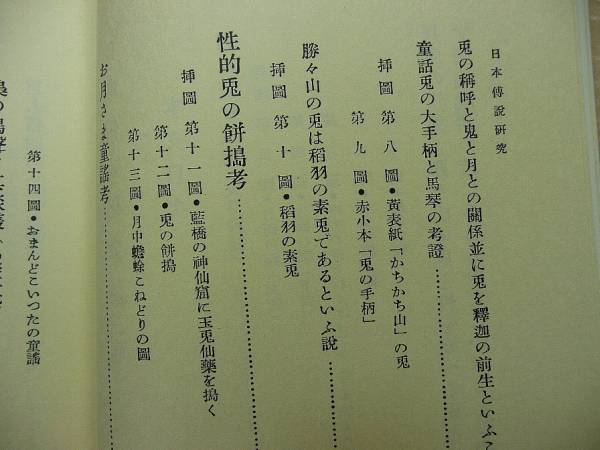 日本傳說硏究
兎の稱呼と鬼と月との關係並に兎を釋迦の前生といふこ
童話兎の大手柄と馬琴の考證
揷圖 第八圖●黃表紙「かちかち山」の兎
第九圖●赤小本「兎の手柄」
勝々山の兎は稻羽の素兎であるといふ說
揷圖 第十圖●稻羽の素兎
性的兎の餅搗考
揷圖 第十一圖●藍橋の神仙窟に玉兎仙藥を搗く
第十二圖●兎の餅搗
第十三圖●月中蟾蜍こねどりの圖
お月さま童謠考
第十四圖●おまんどこいつたの童謠